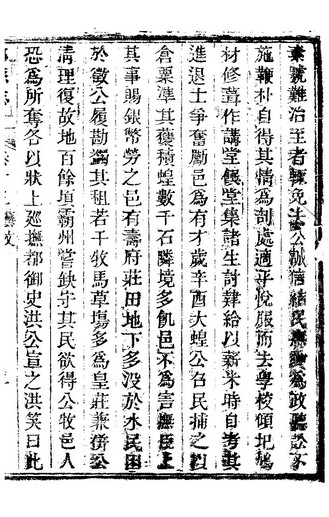 素號難治王者輒免法公誠信結民無繳為政聽訟不
施鞭朴自得其情為剖處適平悅服而去學校傾圯鳩
材修葺作講堂饌堂集諸生討肄給以薪米時自考其
進退士爭奮勵邑為有才歲辛酉大蝗公召民捕之以
倉粟準其囊積蝗數千石隣境多飢邑不為害撫臣上
其事賜銀幣勞之邑有壽府莊田地下多没於水民困
於徵公履勘蠲其租若干牧馬草塲多為皇莊兼併公
清理復故地百餘塤霸州嘗缺守其民欲得公牧邑人
恐為所奪各以狀上廵撫都御史洪公宣之洪笑曰此